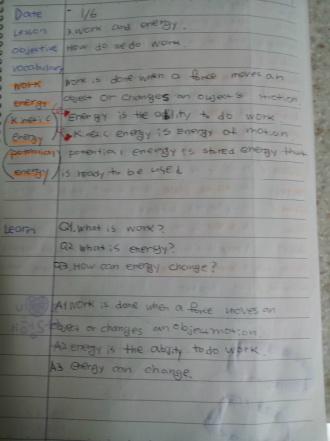 Date - 1/6
Lesson x. work and energy.
objective How do we do work
vocabulary
work work is done when a force moves an
energy object or changes an object's motion
Kinetic Energy is the ability to do work
energy Kinetic energy is energy of motion
potential potential energy is stored energy that
energy is ready to be used
Learn Q1. what is work?
Q2 what is energy?
Q3. How can energy change?
A1 work is done when a force moves an
object or changes an object motion
A2 energy is the ability to do work.
A3 energy can change.